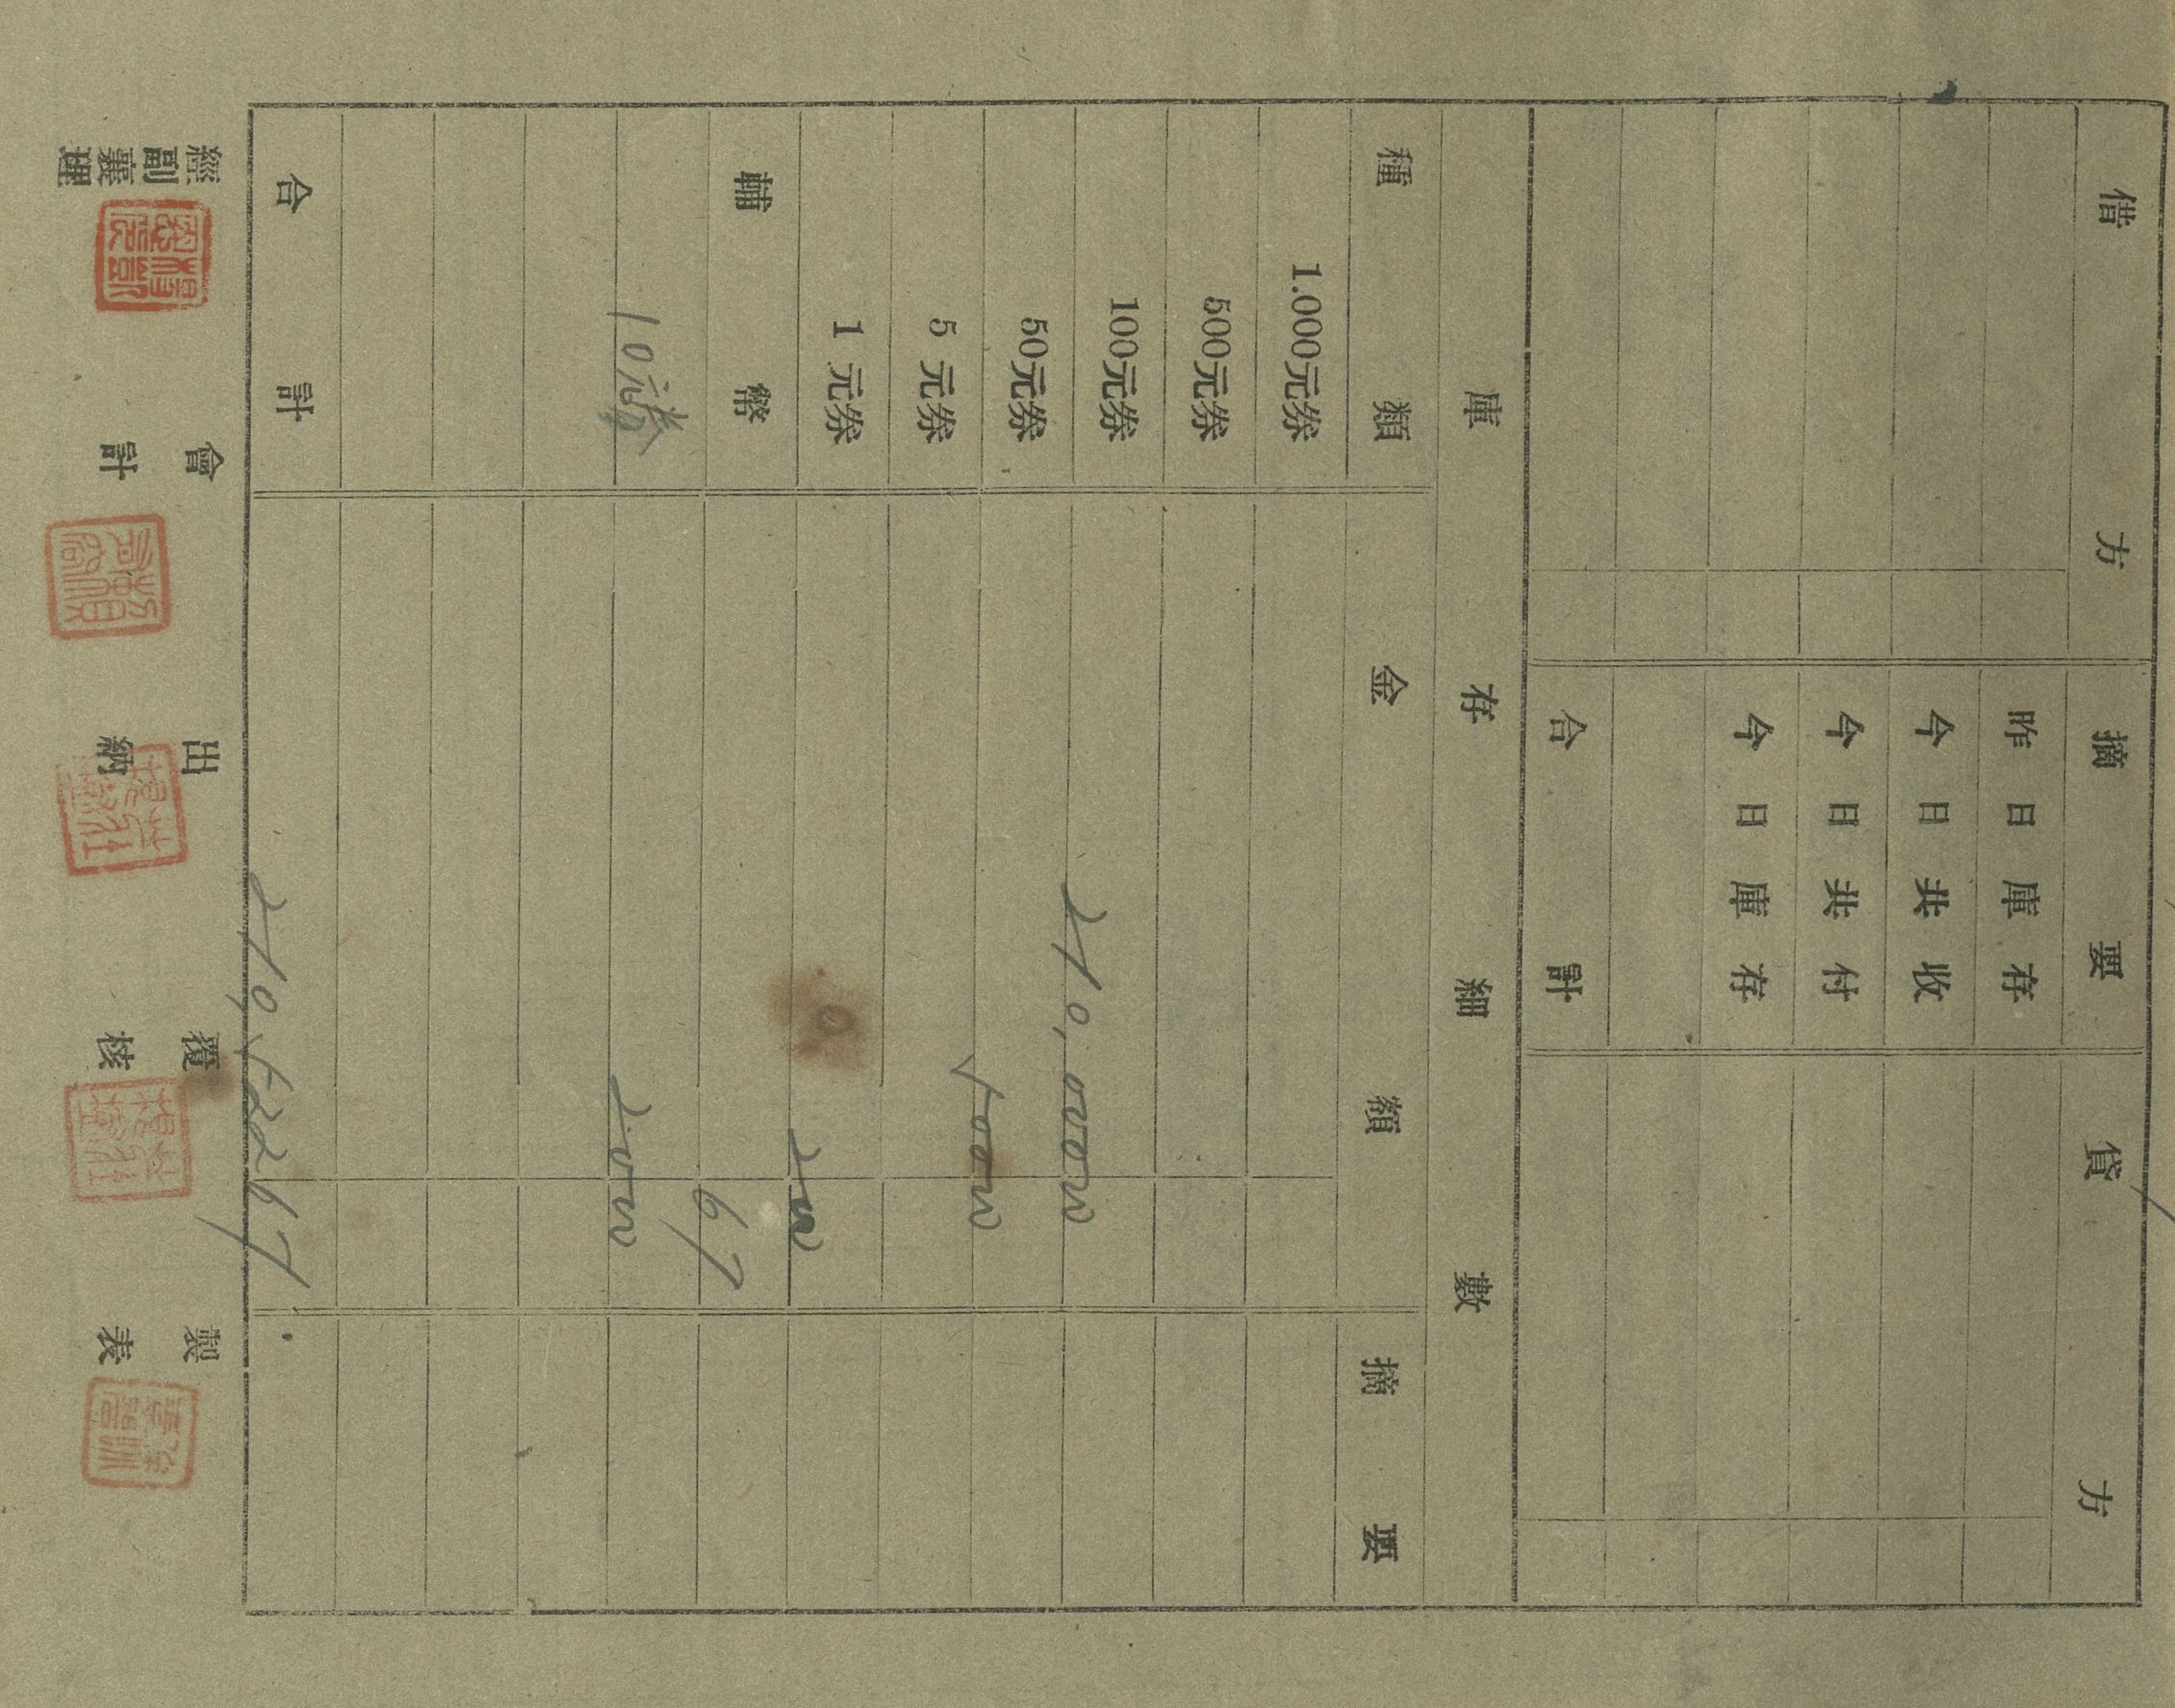 借方 摘要 貸方
昨日庫存
今日共收
今日共付
今日庫存
合計
庫存細數
種類 金額 摘要
1.000元券
500元券
100元券 210,00000
50元券 50000
5元券
1元券 200
輔幣 67
10元券 2000
合計 210,52267
經副襄理 會計 出納 覆核 製表